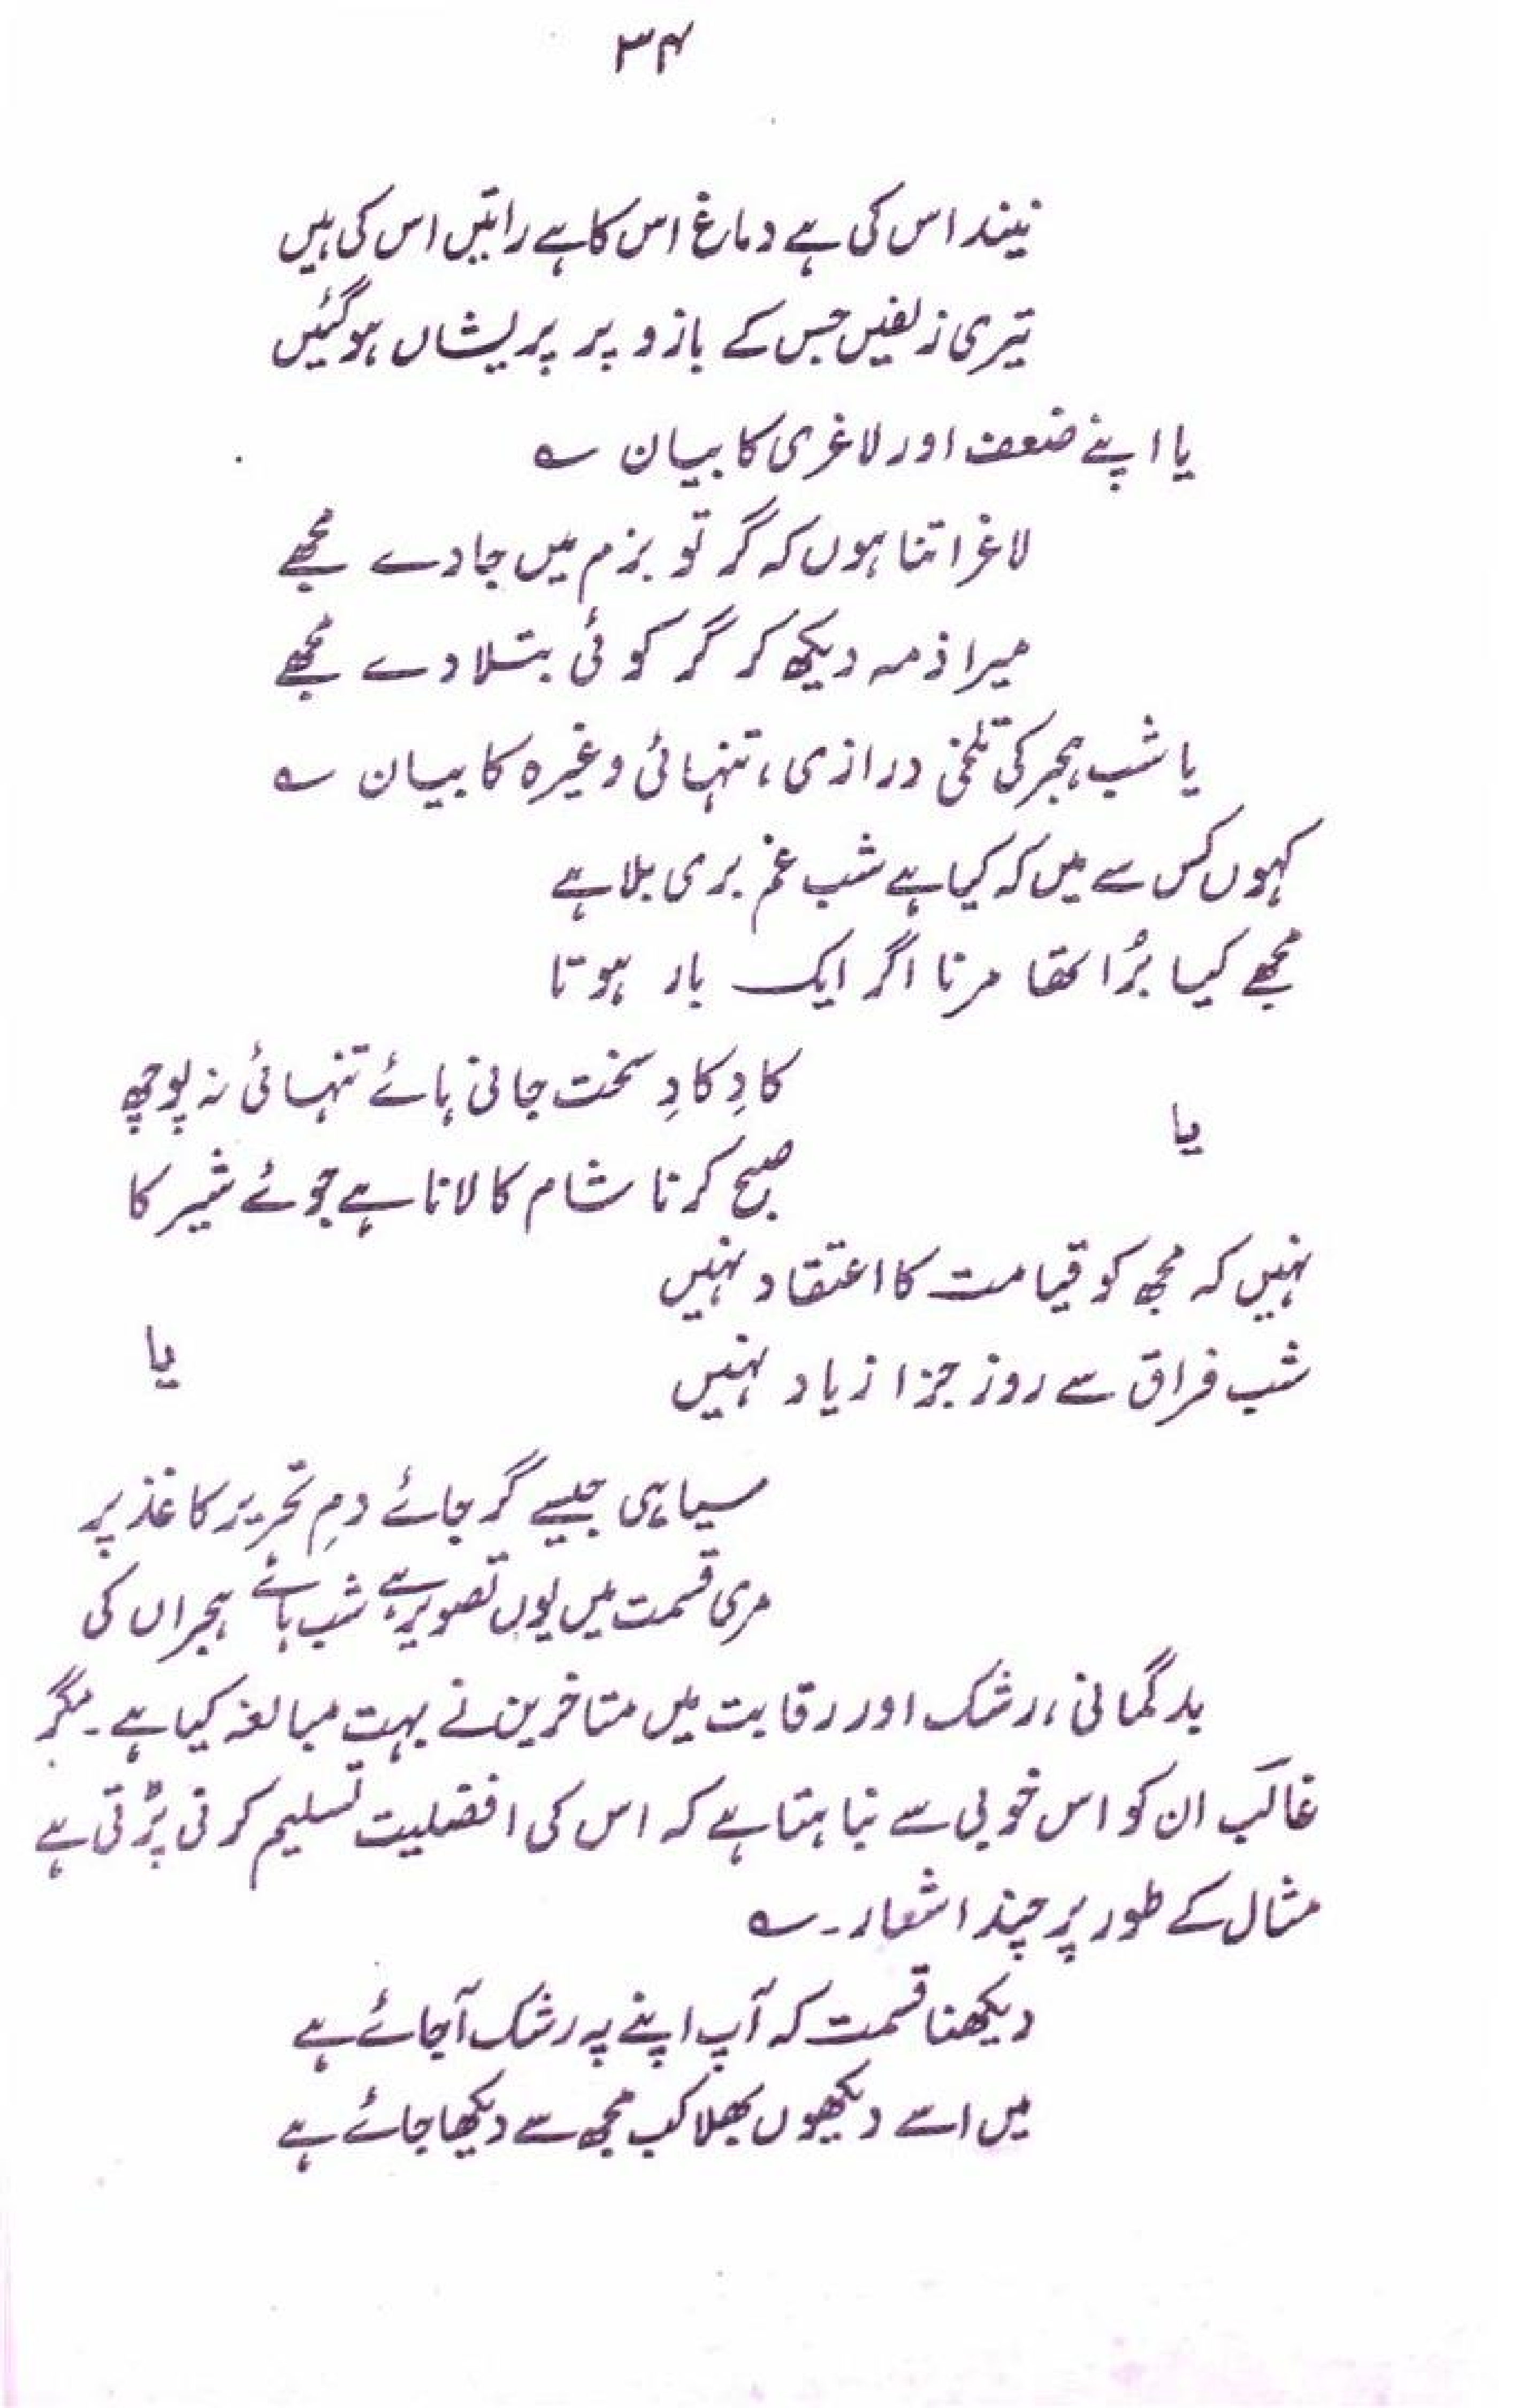 ۳۴
نیند اس کی ہے دماغ اس کا ہے راتیں اس کی ہیں
تیری زلفیں جس کے بازو پر پریشاں ہوگئیں
یا اپنے ضعف اور لاغری کا بیان ؎
لاغر اتنا ہوں کہ گر تو بزم میں جا دے مجھے
میرا ذمہ دیکھ کر گر کوئی بتلا دے مجھے
یا شب ہجر کی تلخی درازی، تنہائی وغیرہ کا بیان ؎
کہوں کس سے میں کہ کیا ہے شب غم بری بلا ہے
مجھے کیا بُرا تھا مرنا اگر ایک بار ہوتا
یا
کادِ کادِ سخت جانی ہائے تنہائی نہ پوچھ
صبح کرنا شام کا لانا ہے جوئے شیر کا
نہیں کہ مجھ کو قیامت کا اعتقاد نہیں
شب فراق سے روز جزا زیاد نہیں
یا
سیاہی جیسے گر جائے دمِ تحریر کاغذ پر
مری قسمت میں یوں تصویر ہے شب ہائے ہجراں کی
بدگمانی، رشک اور رقابت میں متاخرین نے بہت مبالغہ کیا ہے۔ مگر
غالب ان کو اس خوبی سے نباہتا ہے کہ اس کی افضلیت تسلیم کرنی پڑتی ہے
مثال کے طور پر چند اشعار۔ ؎
دیکھنا قسمت کہ آپ اپنے پہ رشک آجائے ہے
میں اسے دیکھوں بھلا کب مجھ سے دیکھا جائے ہے